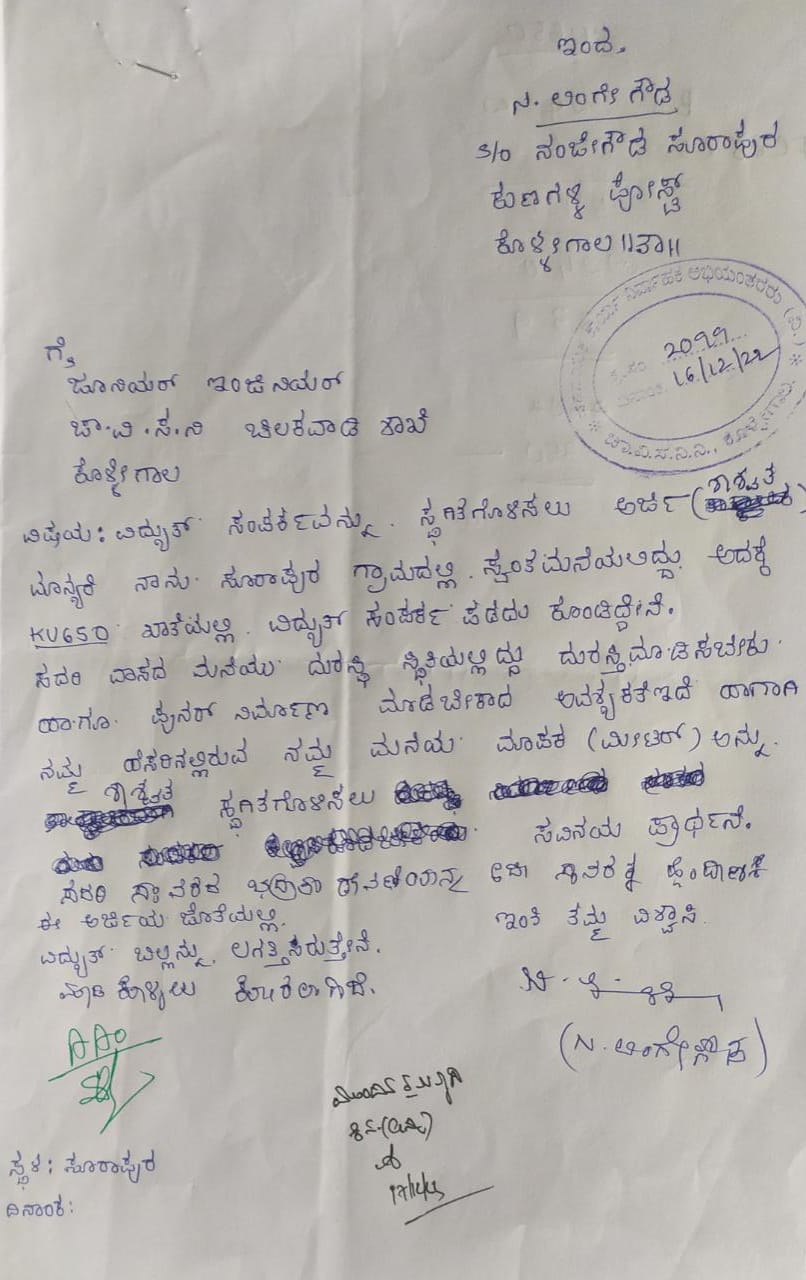 ಇಂದ,
ನ. ಲಿಂಗೇಗೌಡ
S/o ನಂಜೇಗೌಡ ಸೂರಾಪುರ
ಕುಣಗಳ್ಳಿ ಪೋಸ್ಟ್
ಕೊಳ್ಳೇಗಾಲ ||ತಾ||
ಕಾರ್ಯ ನಿರ್ವಾಹಕ ಅಭಿಯಂತರರು (ವಿ.)
16/12/22
ಚಾ.ವಿ.ಸ.ನಿ.ನಿ., ಕೊಳ್ಳೇಗಾಲ.
ಗೆ,
ಜೂನಿಯರ್ ಇಂಜಿನಿಯರ್
ಚಾ.ವಿ.ಸ.ನಿ ಚಿಲಕವಾಡಿ ಶಾಖೆ
ಕೊಳ್ಳೇಗಾಲ
ವಿಷಯ: ವಿದ್ಯುತ್ ಸಂಪರ್ಕವನ್ನು. ಸ್ಥಗಿತಗೊಳಿಸಲು ಅರ್ಜಿ (ಶಾಶ್ವತ)
ಮಾನ್ಯರೆ ನಾನು ಸೂರಾಪುರ ಗ್ರಾಮದಲ್ಲಿ. ಸ್ವಂತ ಮನೆಯಲಿದ್ದು ಅದಕ್ಕೆ
KUG50 ಖಾತೆಯಲ್ಲಿ. ವಿದ್ಯುತ್ ಸಂಪರ್ಕ ಪಡದು ಕೊಂಡಿದ್ದೇನೆ.
ಸದರಿ ವಾಸದ ಮನೆಯು ದುರಸ್ತಿ ಸ್ಥಿತಿಯಲ್ಲಿದ್ದು ದುರಸ್ತಿಮಾಡಿಸಬೇಕು
ಹಾಗೂ ಪುನರ್ ನಿರ್ಮಾಣ ಮಾಡಬೇಕಾದ ಅವಶ್ಯಕತೆ ಇದೆ ಹಾಗಾಗಿ
ನಮ್ಮ ಹೆಸರಿನಲ್ಲಿರುವ ನಮ್ಮ ಮನೆಯ ಮಾಪಕ (ಮೀಟರ್) ಅನ್ನು.
ಶಾಶ್ವತ ಸ್ಥಗಿತಗೊಳಿಸಲು
ಸವಿನಯ ಪ್ರಾರ್ಥನೆ.
ಸದರಿ ಸ್ಥಾವರದ ಭದ್ರತಾ
ಈ ಅರ್ಜಿಯ ಜೊತೆಯಲ್ಲಿ. ಇಂತಿ ತಮ್ಮ ವಿಶ್ವಾಸಿ.
ವಿದ್ಯುತ್ ಬಿಲ್ಲನ್ನು ಲಗತ್ತಿಸಿರುತ್ತೇನೆ.
ಮಾಡಿ ಕೊಳ್ಳಲು ಕೋರಲಾಗಿದೆ.
(N. ಲಿಂಗೇಗೌಡ)
AAO
ಸ್ಥಳ: ಸೂರಾಪುರ
ದಿನಾಂಕ: